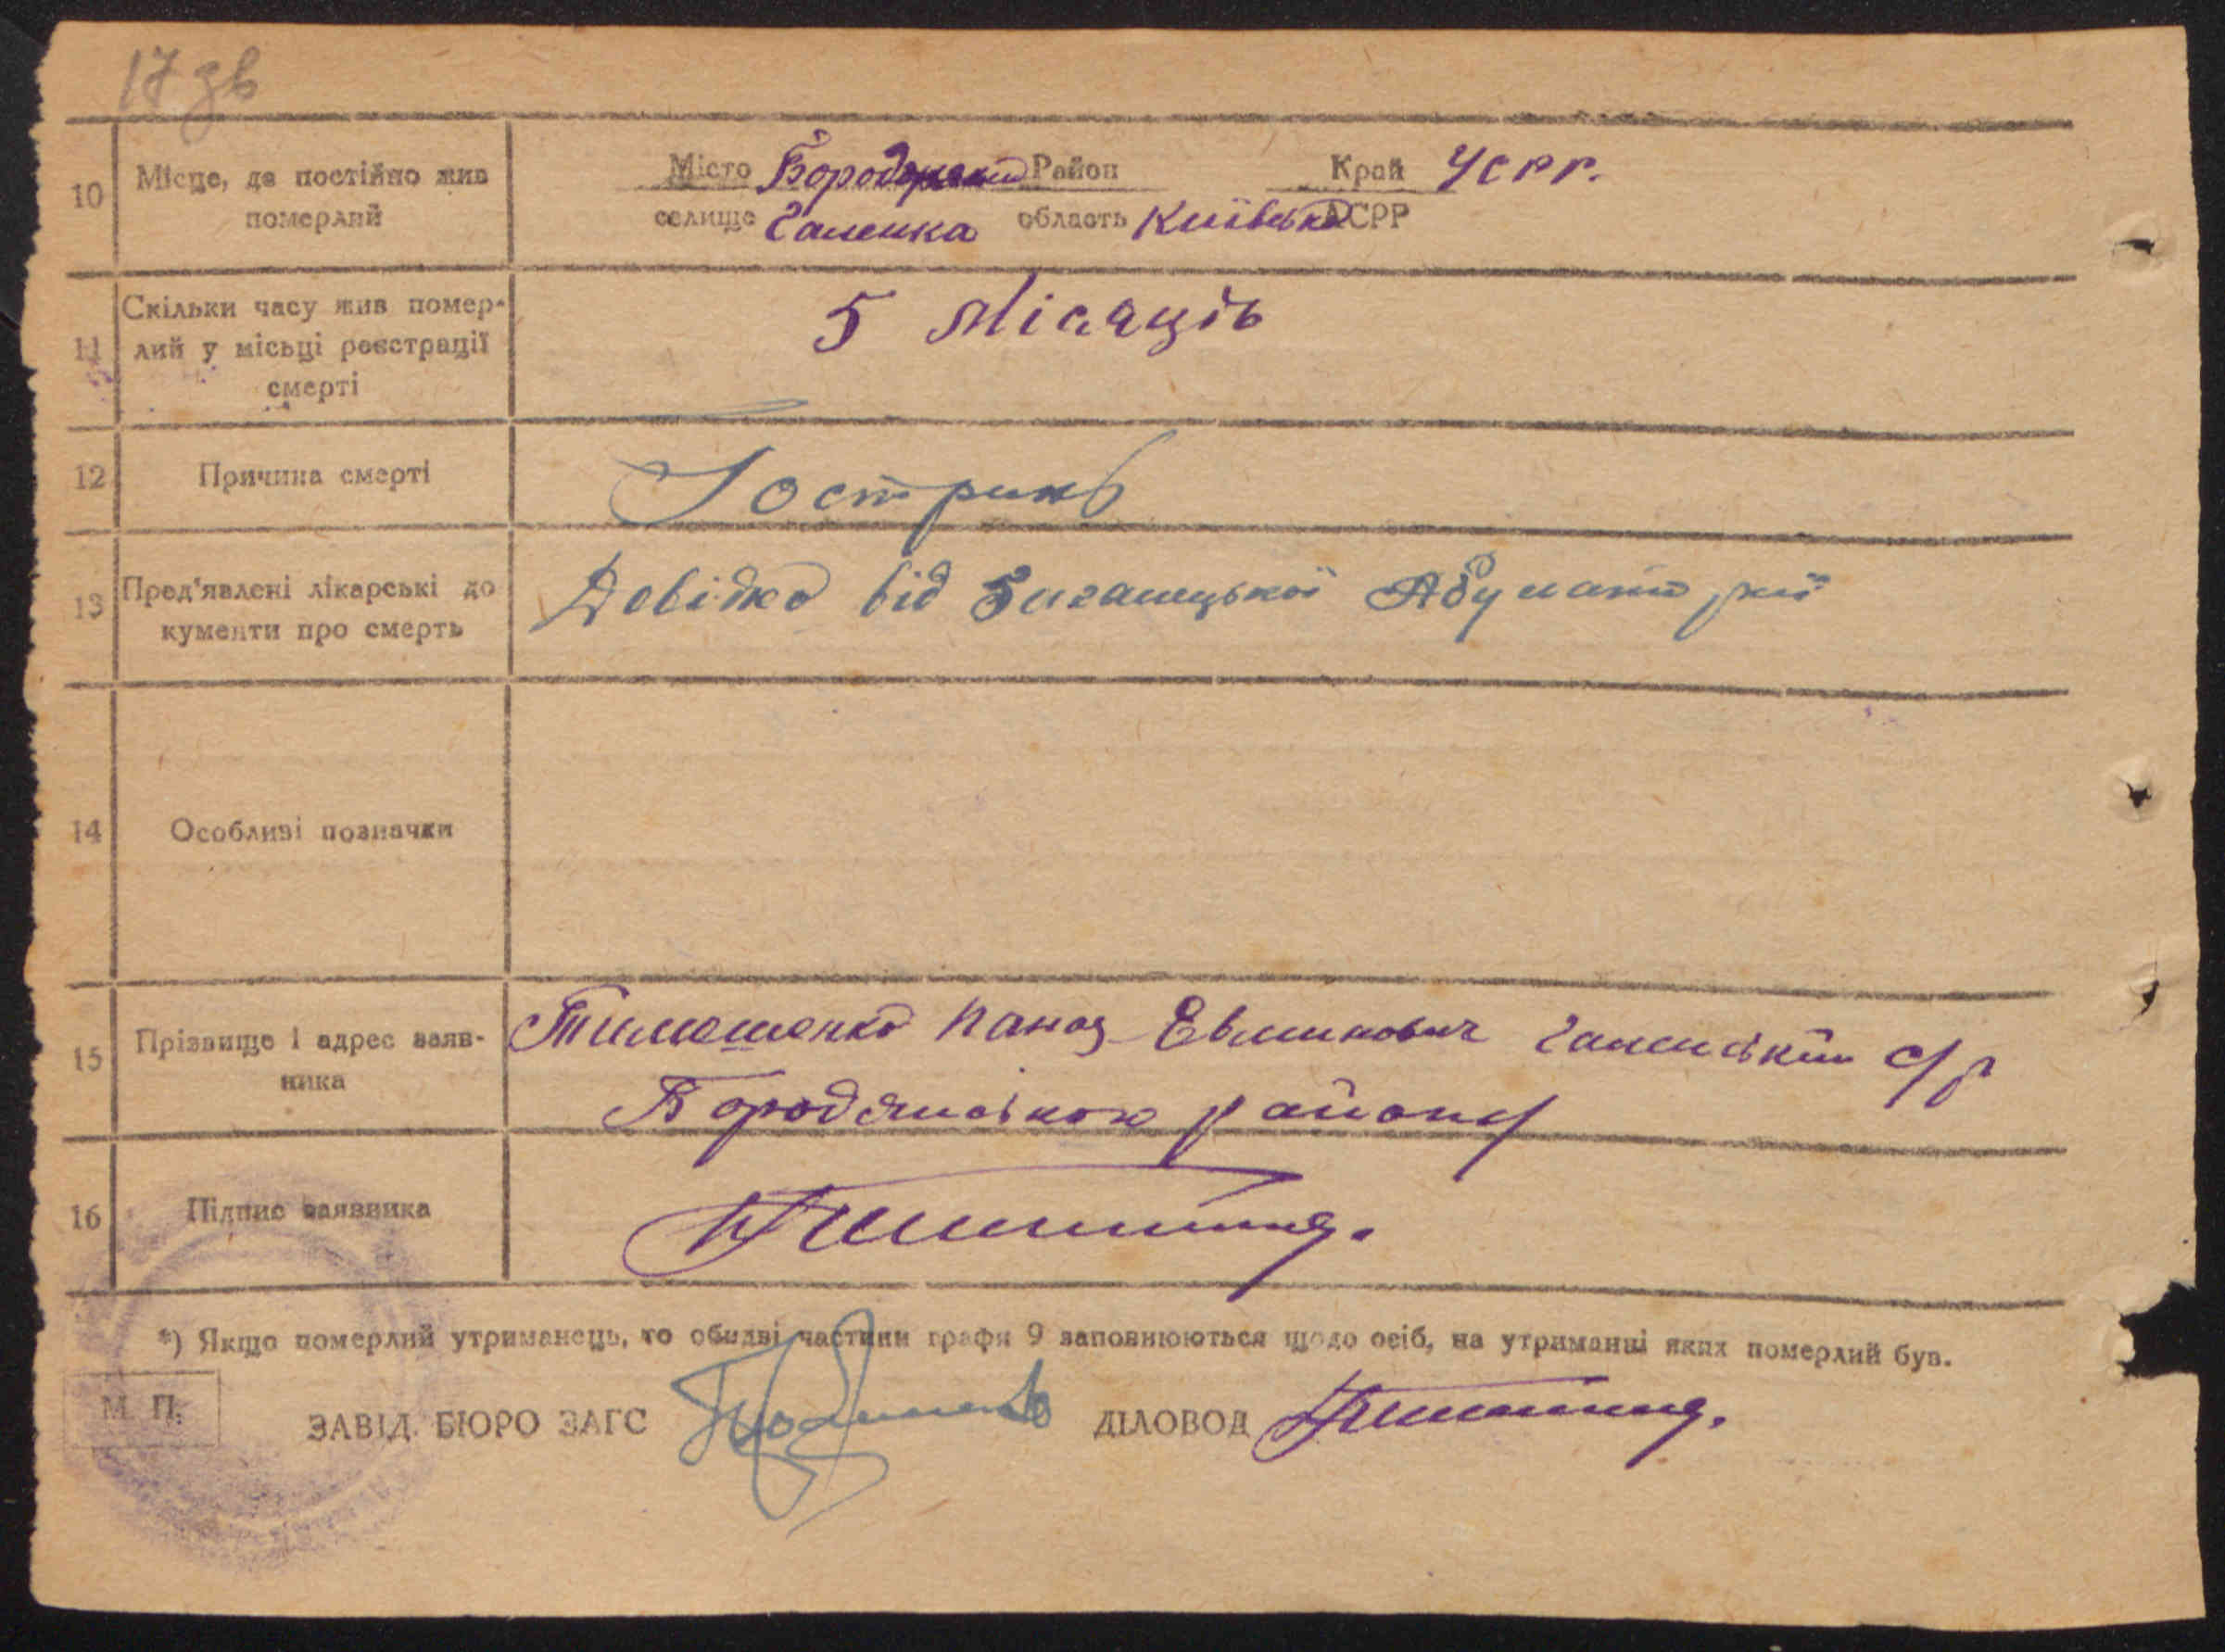 17 зв
10 Місце, де постійно жив
померлий
Місто Бородянський Район Край УСРР.
селище Галенка область Київська АСРР
11 Скільки часу жив помер-
лий у місьці реєстрації
смерті
5 місяців
12 Причина смерті
13 Пред'явлені лікарські до
кументи про смерть
Довідка від
14 Особливі позначки
15 Прізвище і адрес заяв-
ника
Тимошенко Панас с/р
Бородянського району
16 Підпис заявника
*) Якщо померлий утриманець, то обидві частини графи 9 заповнюються щодо осіб, на утриманні яких померлий був.
М. П.
ЗАВІД. БЮРО ЗАГС ДІЛОВОД